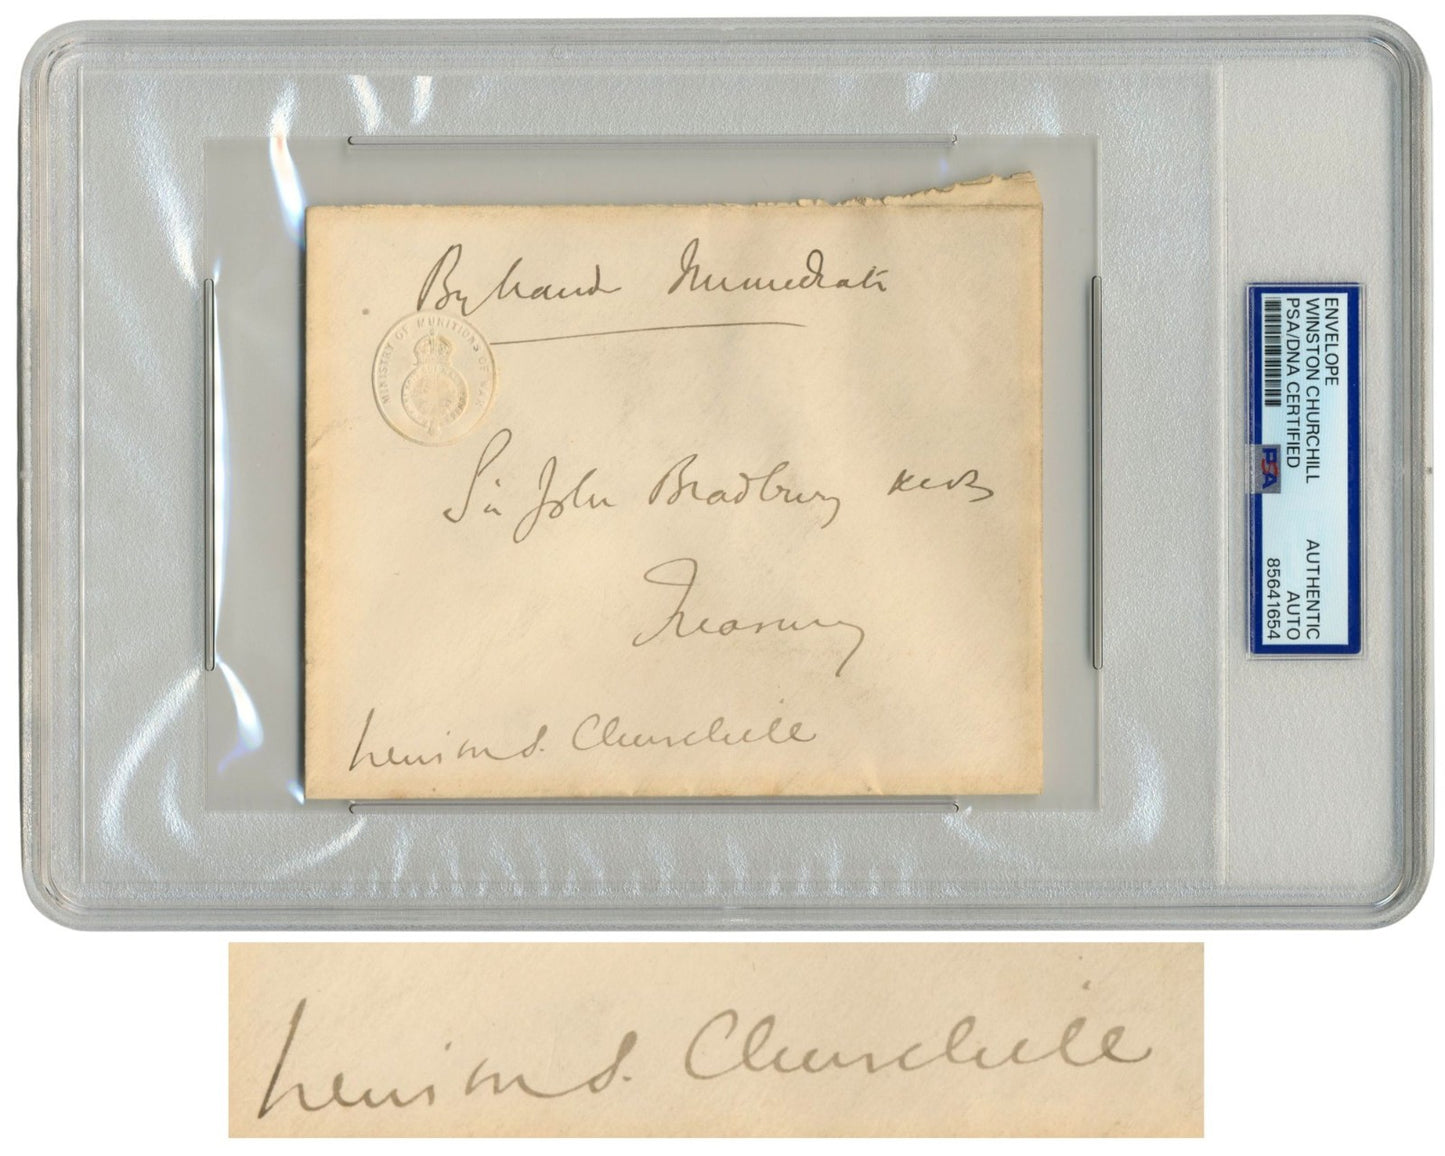 By hand Immediate
MINISTRY OF MUNITIONS OF WAR
Sir John Bradbury KCB
Treasury
Winston S. Churchill
ENVELOPE
WINSTON CHURCHILL
PSA/DNA CERTIFIED
AUTHENTIC
AUTO
85641654
PSA
Winston S. Churchill